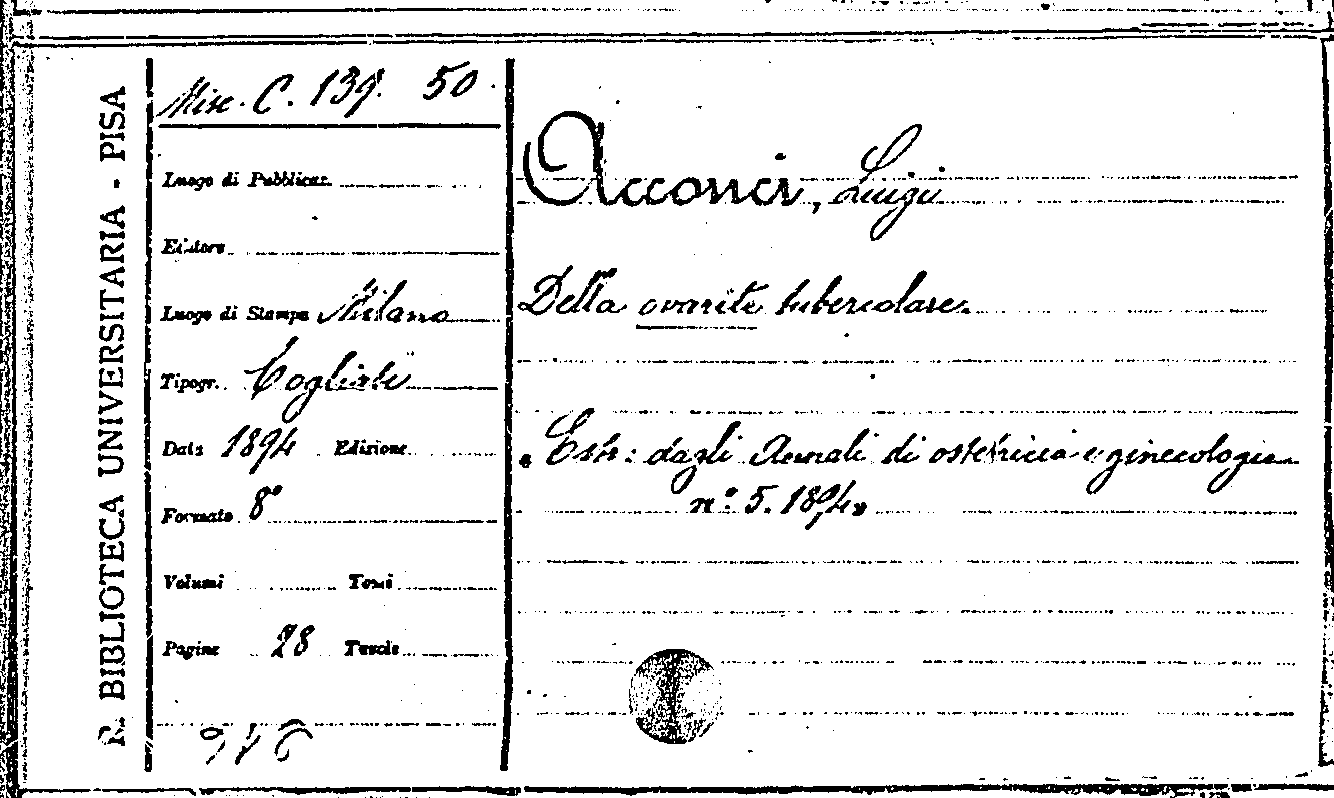 R. BIBLIOTECA UNIVERSITARIA - PISA
Misc. C. 139. 50
Luogo di Pubblicaz.
Editore
Luogo di Stampa Milano
Tipogr. Cogliati
Data 1894 Edizione
Formato 8°
Volumi Tomi
Pagine 28 Tavole
Acconci, Luigi
Della ovarite tubercolare.
"Estr: dagli Annali di ostetricia e ginecologia
n°. 5. 1894"